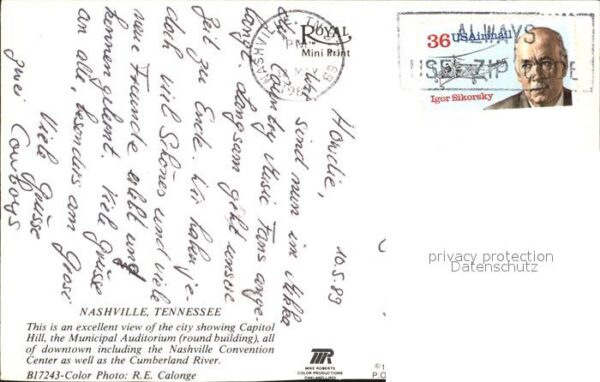 ROYAL
Mini Print
NASHVILLE
PM
36 USAirmail
Igor Sikorsky
ALWAYS
USE ZIP CODE
10.5.89
Howdie,
Wir sind nun im Mekka
der Country Music Fans ange-
langt. Langsam geht unsere
Zeit zu Ende. Wir haben je-
doch viel Schönes und viele
neue Freunde erlebt und
kennen gelernt. Viele Grüsse
an alle, besonders am Grosi
Viele Grüsse
zwei Cowboys
privacy protection
Datenschutz
NASHVILLE, TENNESSEE
This is an excellent view of the city showing Capitol
Hill, the Municipal Auditorium (round building), all
of downtown including the Nashville Convention
Center as well as the Cumberland River.
B17243-Color Photo: R.E. Calonge
MIKE ROBERTS
COLOR PRODUCTIONS